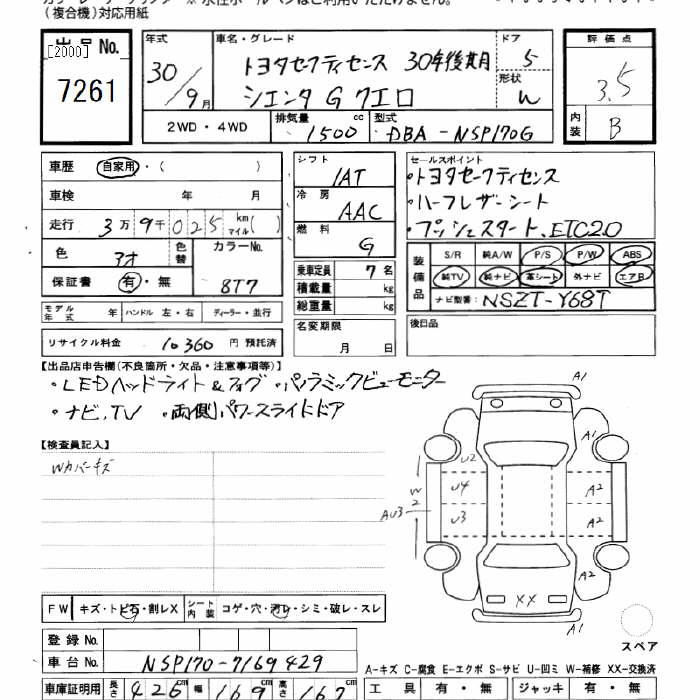 （複合機）対応用紙
出品 No.
[2000]
7261
年式
30/9月
車名・グレード
トヨタセーフティセンス 30年後期
シエンタ G クエロ
ドア
5
形状
W
2WD・4WD
排気量
1500 cc
型式
DBA-NSP170G
評価点
3.5
内装
B
車歴 自家用・（ ）
車検 年 月
走行 3万9千025 km マイル( )
色 アオ 色替 カラーNo. 8T7
保証書 有・無
モデル年式 年 ハンドル 左・右 ディーラー・並行
リサイクル料金 10360円 預託済
シフト 1AT
冷房 AAC
燃料 G
乗車定員 7名
積載量 kg
総重量 kg
名変期限
月 日
セールスポイント
・トヨタセーフティセンス
・ハーフレザーシート
・プッシュスタート、ETC2.0
装備品
S/R 純A/W P/S P/W ABS
純TV 純ナビ 革シート 外ナビ エアB
ナビ型番： NSZT-Y68T
後日品
【出品店申告欄(不良箇所・欠品・注意事項等)】
・LEDヘッドライト&フォグ ・パノラミックビューモニター
・ナビ,TV ・両側パワースライドドア
【検査員記入】
Wカバーキズ
A1
A1
U2
W2
U4
A2
AU3
U3
A2
A2
XX
A1
スペア
FW キズ・トビ石・割レX シート内装 コゲ・穴・汚レ・シミ・破レ・スレ
登録 No.
車台 No. NSP170-7169429
車庫証明用 長さ 426cm 幅 169cm 高さ 167
A-キズ C-腐食 E-エクボ S-サビ U-凹ミ W-補修 XX-交換済
工具 有・無 ジャッキ 有・無